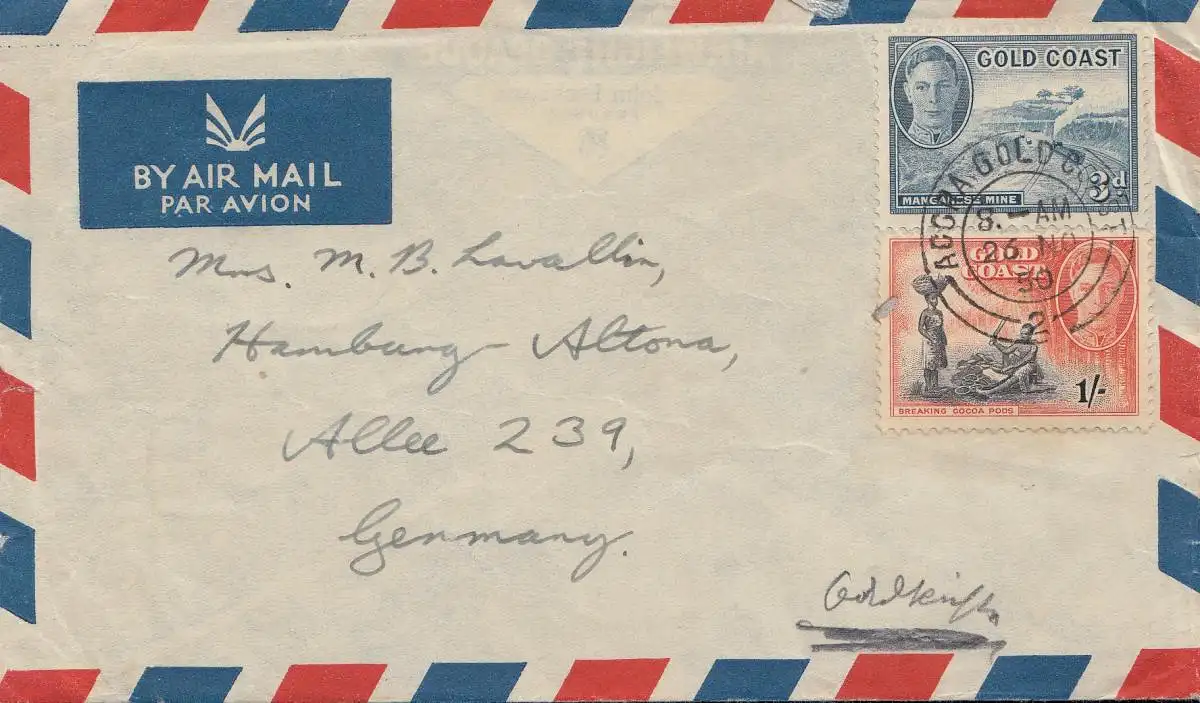 BY AIR MAIL
PAR AVION
GOLD COAST
3d
MANGANESE MINE
ACCRA GOLD COAST
8. - AM
26 NO
50
2
GOLD
COAST
1/-
BREAKING COCOA PODS
Mrs. M. B. Lavallin,
Hamburg - Altona,
Allee 239,
Germany.